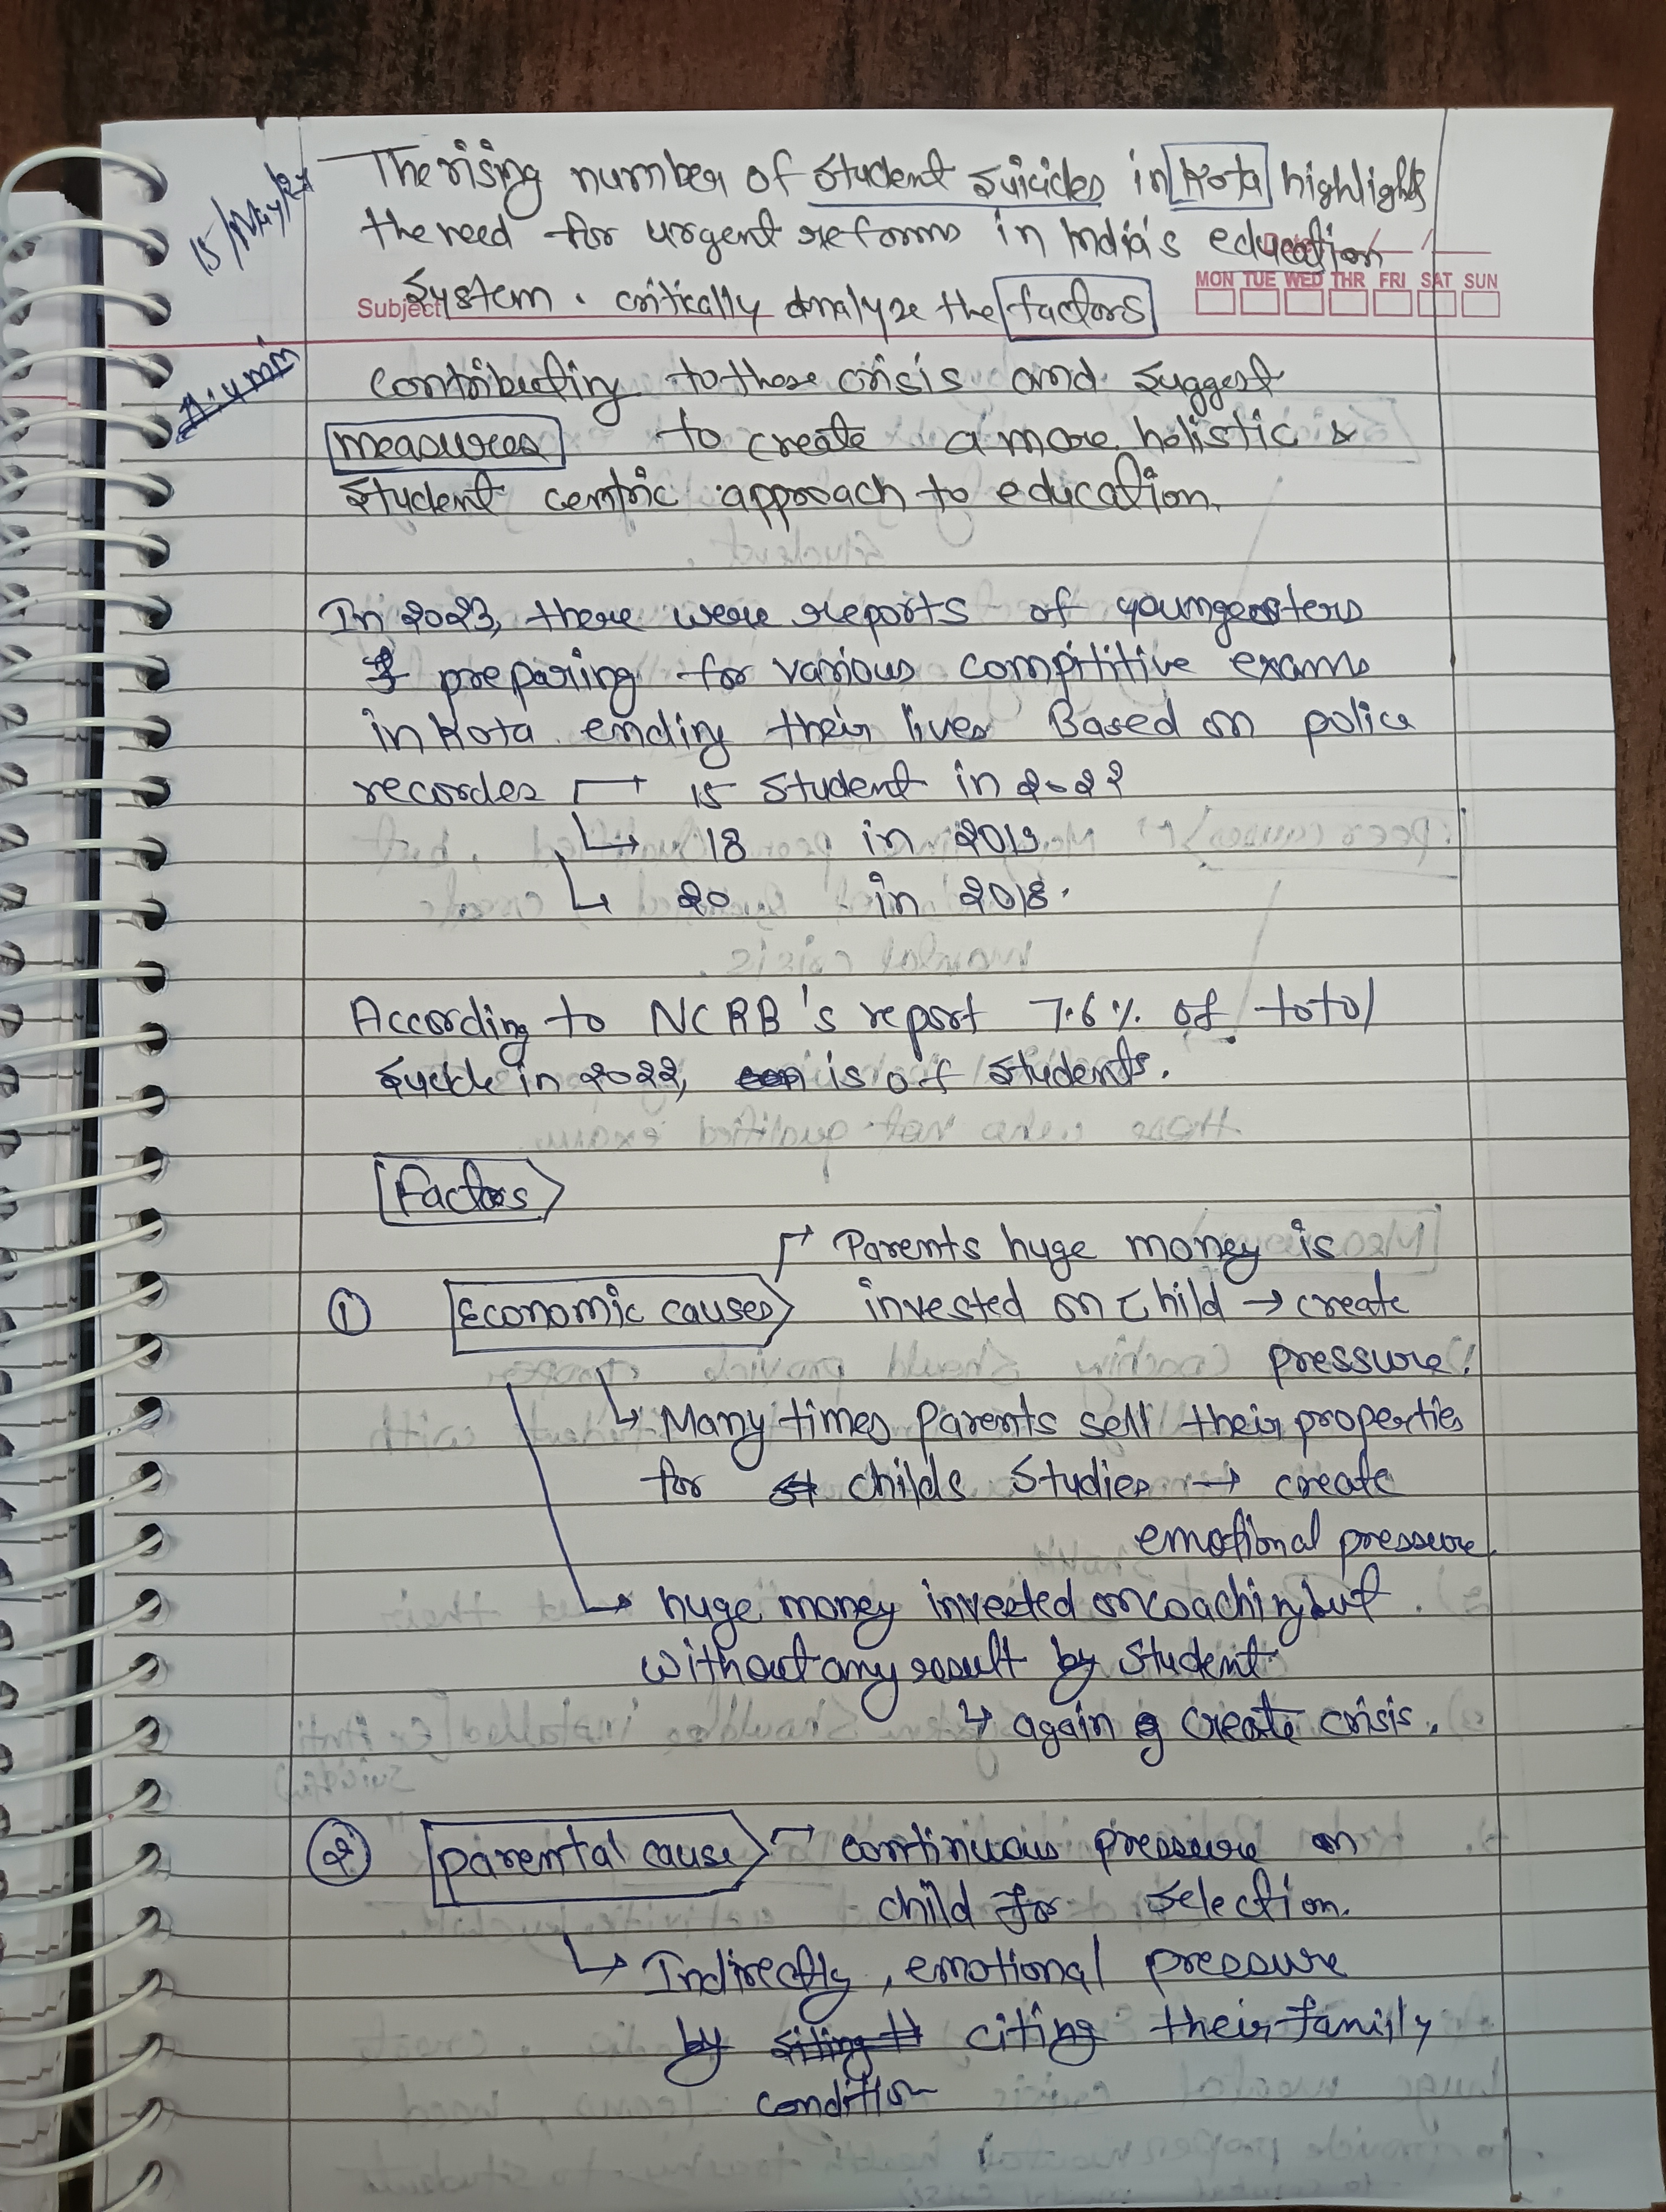 15/May/24
The rising number of student suicides in Kota highlights
the need for urgent reforms in India's education
Subject
system. critically analyze the factors
MON TUE WED THR FRI SAT SUN
contributing to these crisis and suggest
measures to create a more holistic &
student centric approach to education.
In 2023, there were reports of youngesters
preparing for various compititive exams
in Kota ending their lives Based on police
recordes → 15 student in 2022
↳ 18 in 2019
↳ 20 in 2018.
According to NCRB's report 7.6% of total
in 2022, is of students.
Factors
① Economic causes → Parents huge money is
invested on child → create
pressure.
↳ Many times parents sell their properties
for childs studies → create
emotional pressure
↳ huge money invested on coaching but
without any result by student
↳ again create crisis.
② parental cause → continuous pressure on
child for selection.
↳ Indirectly, emotional pressure
by citing their family
condition